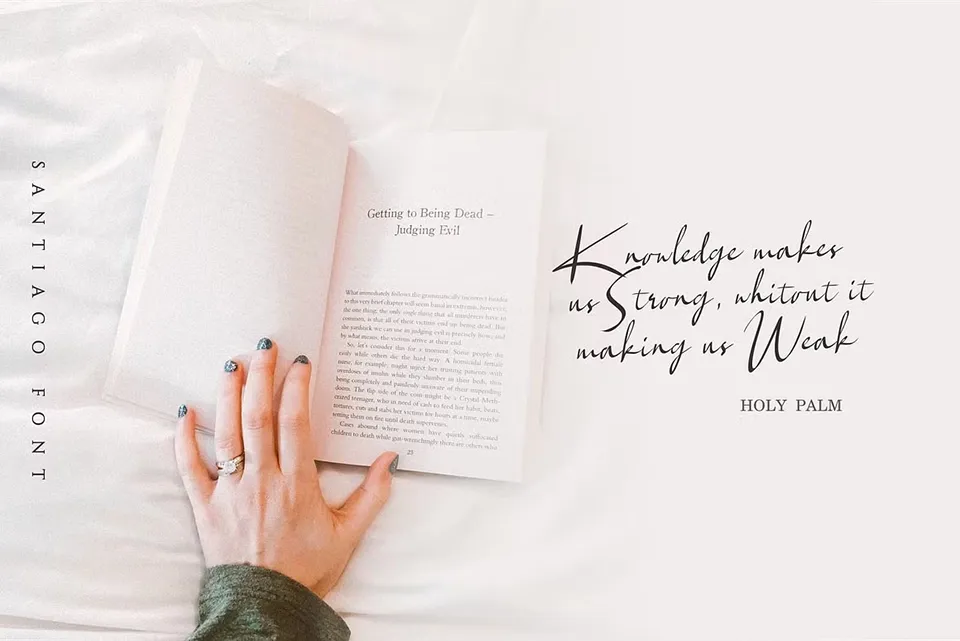 SANTIAGO FONT
Getting to Being Dead –
Judging Evil
What immediately follows the grammatically incorrect header
to this very brief chapter will seem banal in extremis, however,
the one thing, the only single thing that all murderers have in
common, is that all of their victims end up being dead. But
the yardstick we can use in judging evil is precisely how, and
by what means, the victims arrive at their end.
So, let's consider this for a moment. Some people die
easily while others die the hard way. A homicidal female
nurse, for example, might inject her trusting patients with
overdoses of insulin while they slumber in their beds, thus
being completely and painlessly unaware of their impending
doom. The flip side of the coin might be a Crystal-Meth-
crazed teenager, who in need of cash to feed her habit, beats,
tortures, cuts and stabs her victims for hours at a time, maybe
setting them on fire until death supervenes.
Cases abound where women have quietly suffocated
children to death while gut-wrenchingly there are others who
25
Knowledge makes
us Strong, whitout it
making us Weak
HOLY PALM